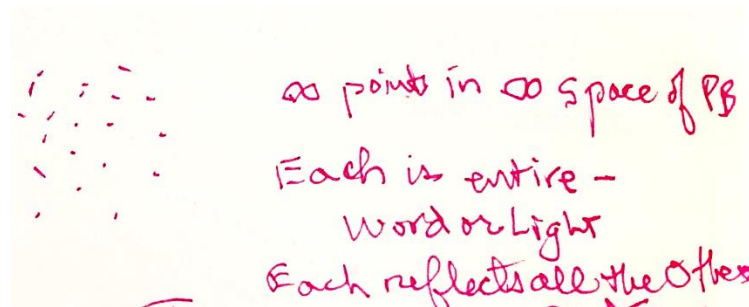 ∞ points in ∞ space of PB
Each is entire –
Word or Light
Each reflects all the Other